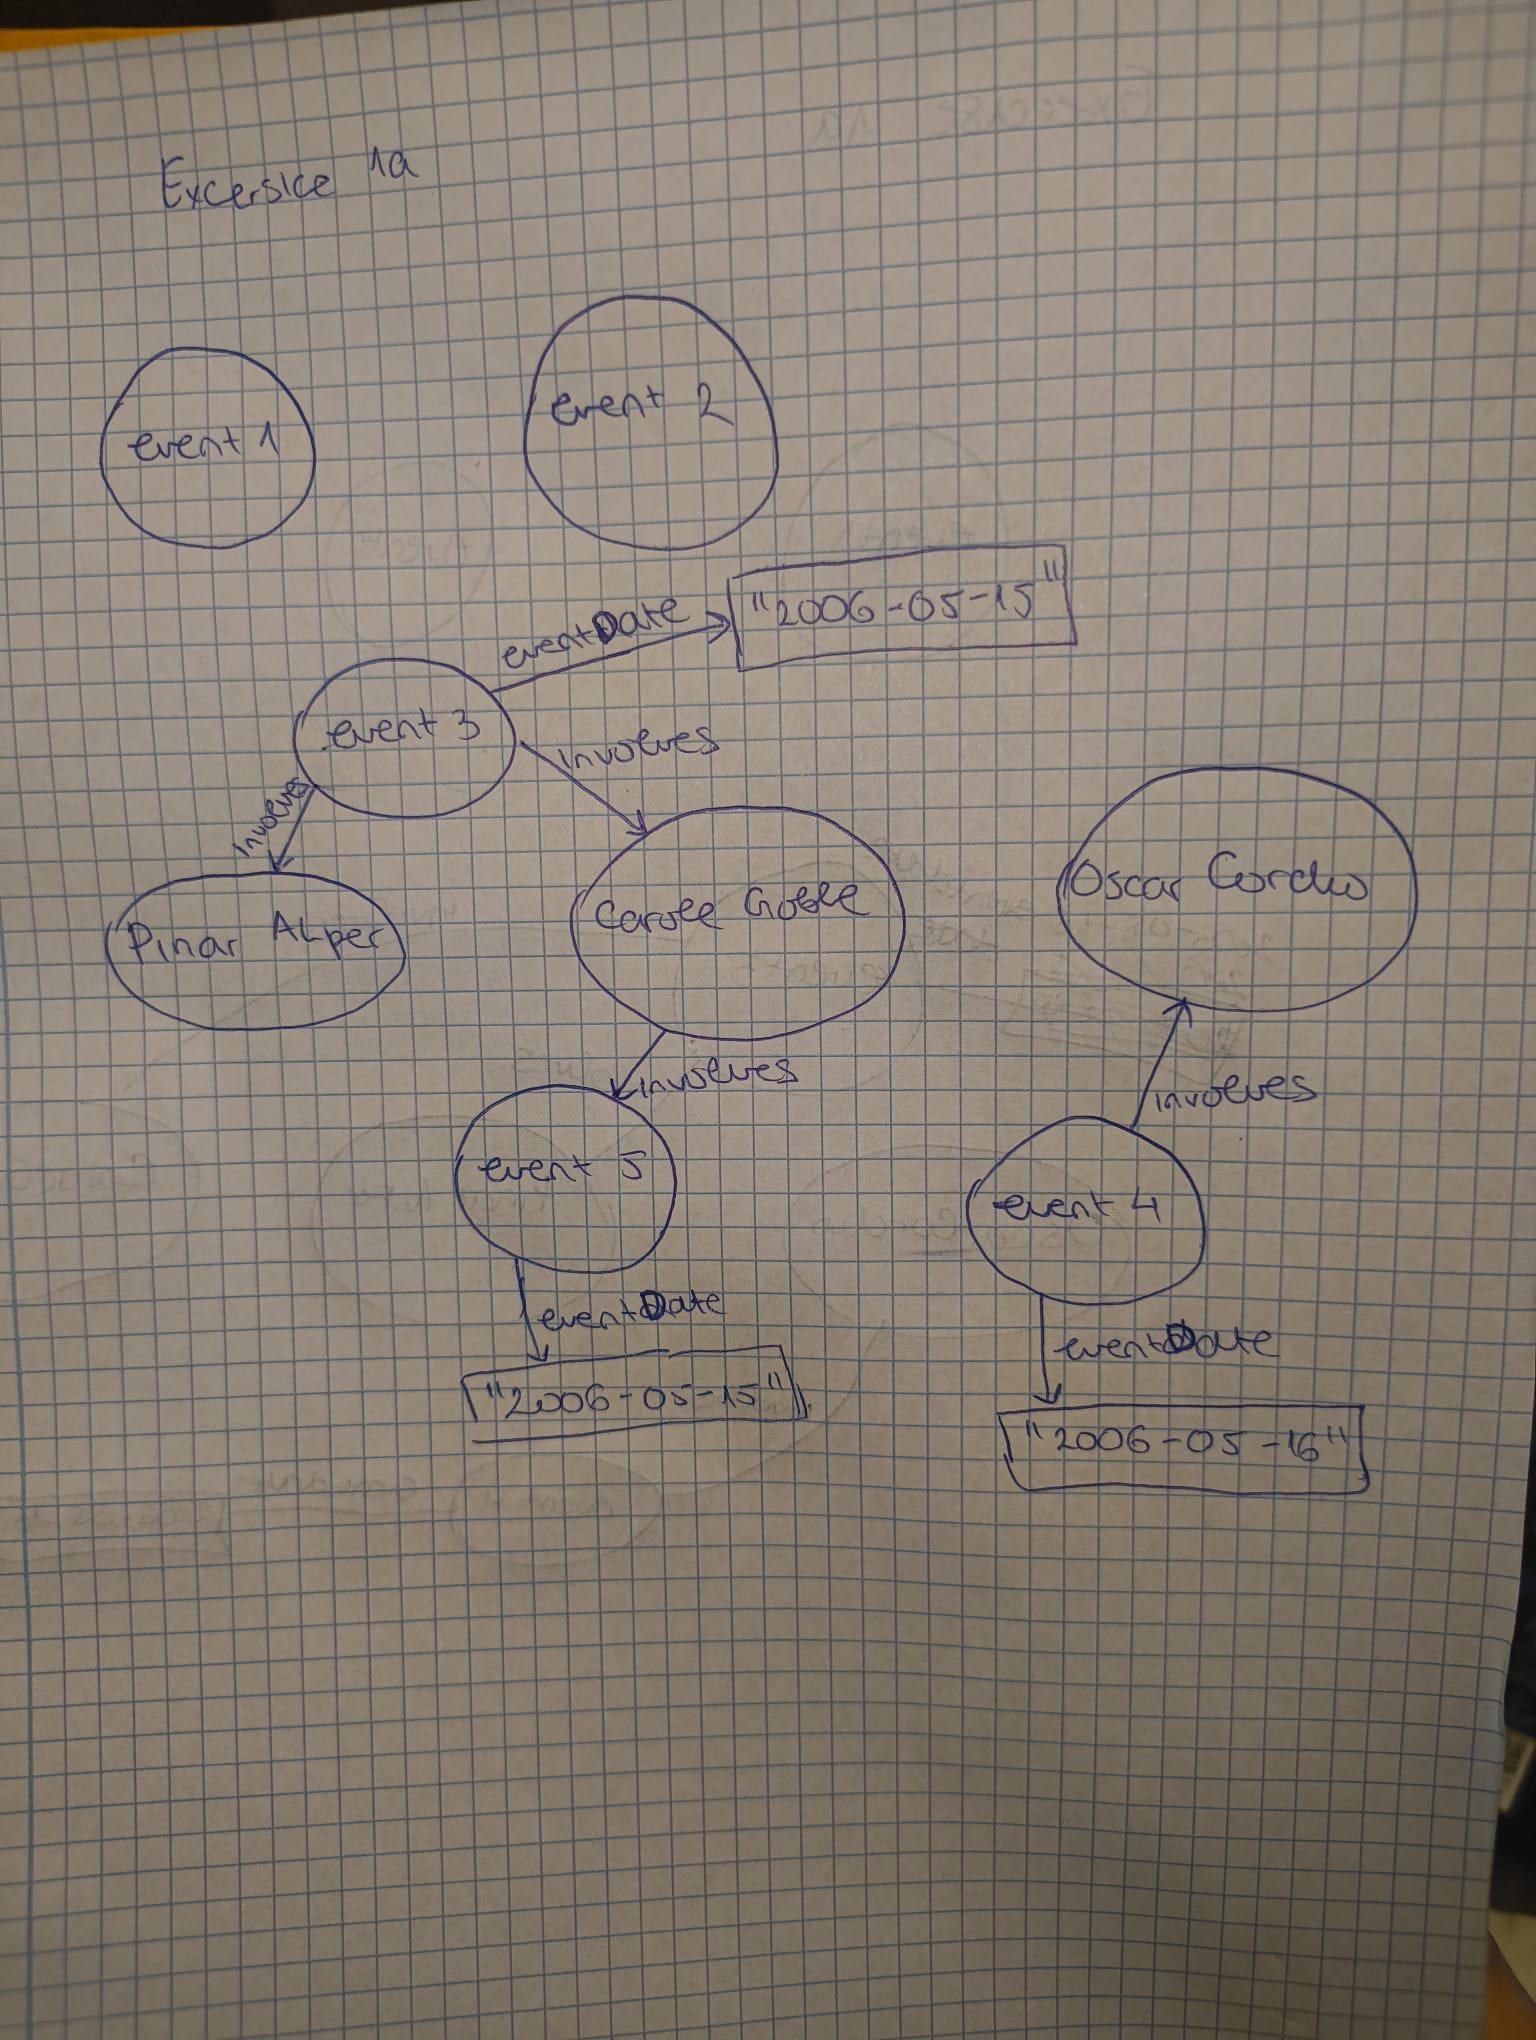 Excersice 1a
event 1
event 2
eventDate
"2006-05-15"
event 3
involves
involves
Pinar Alper
Carole Goble
Oscar Corcho
involves
involves
event 5
event 4
eventDate
eventDate
"2006-05-15"
"2006-05-16"